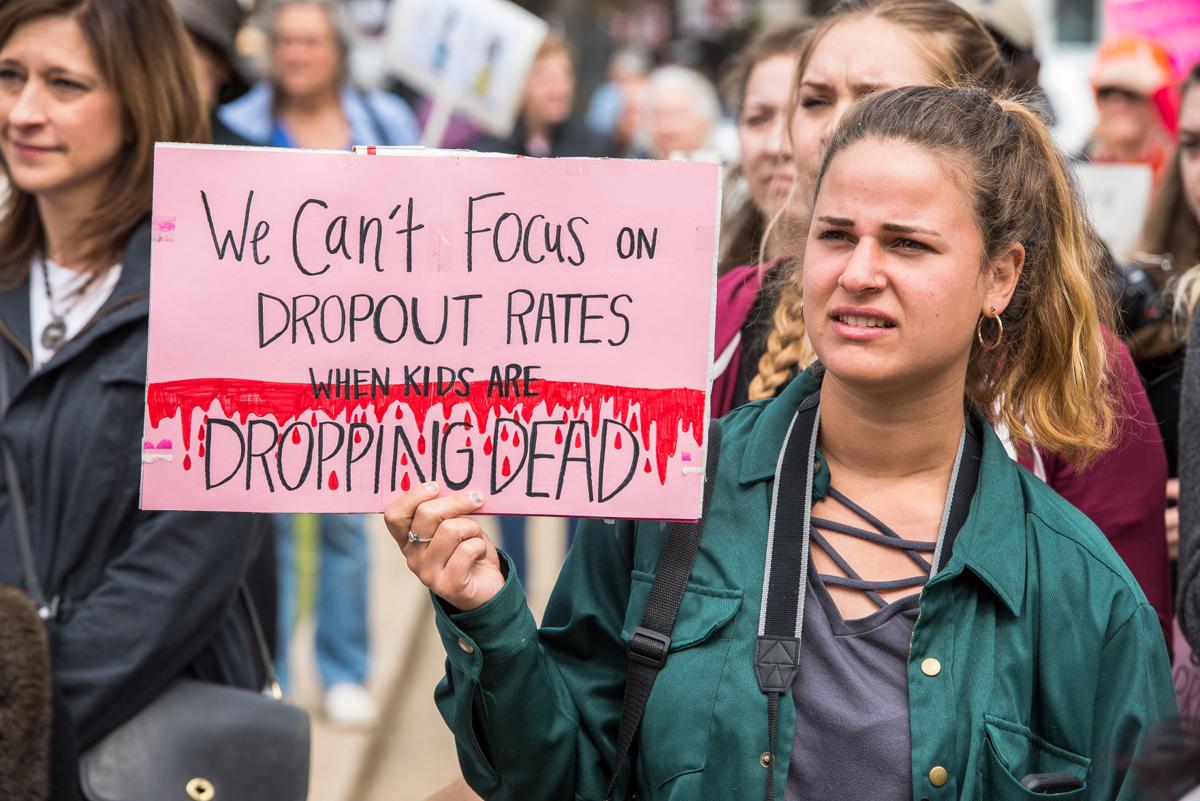 We Can't Focus on
DROPOUT RATES
WHEN KIDS ARE
DROPPING DEAD